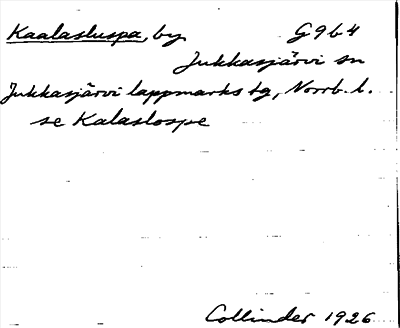 Kaalasluspa, by G9b4
Jukkasjärvi sn
Jukkasjärvi lappmarks tg, Norrb. l.
se Kalaslospe
Collinder 1926